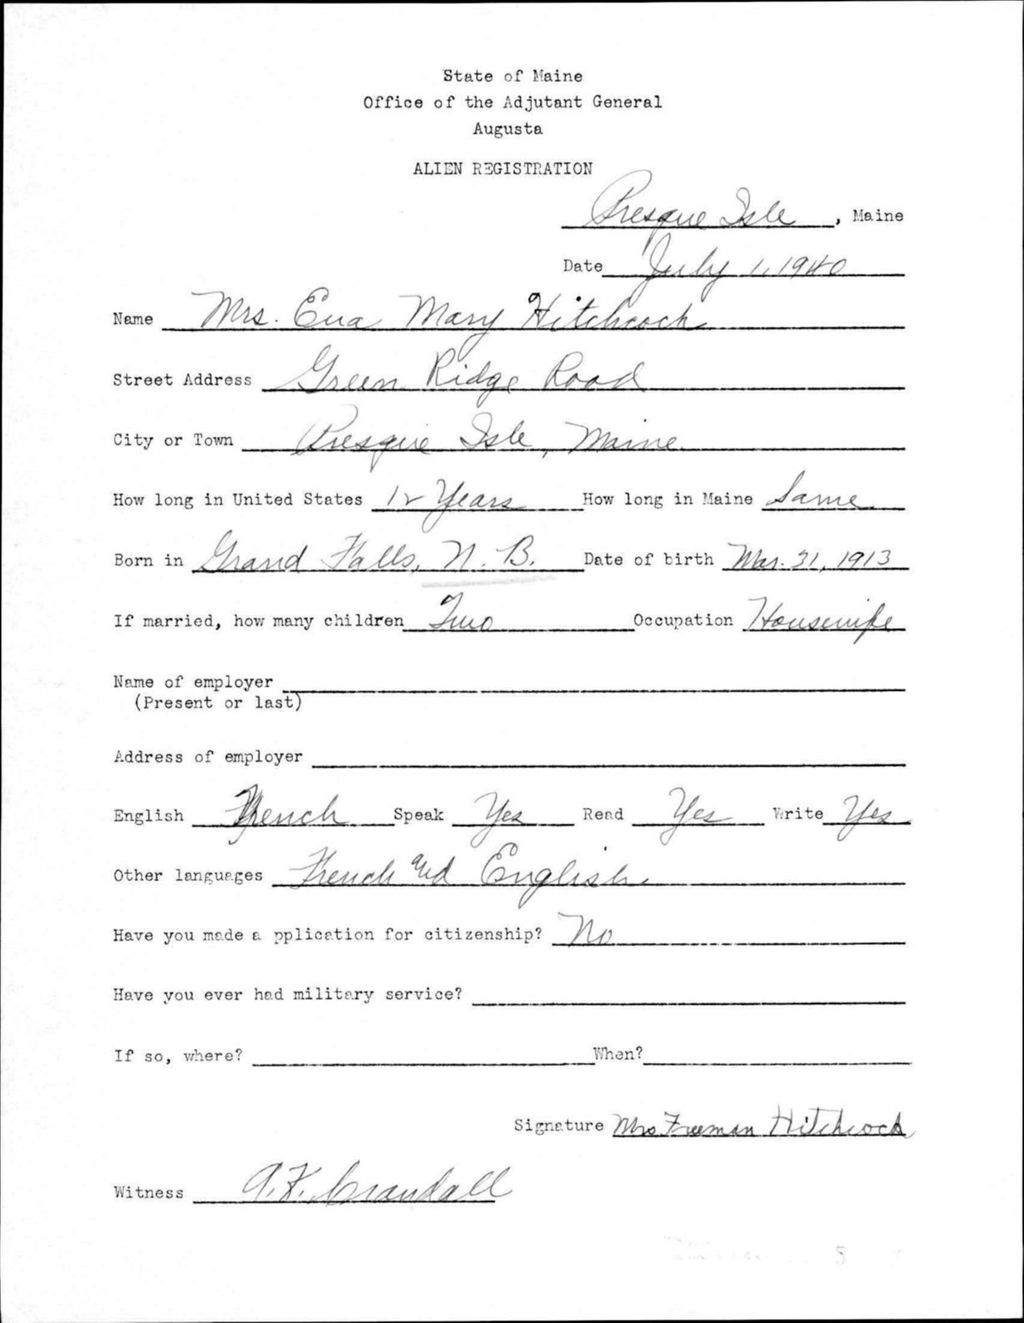 State of Maine
Office of the Adjutant General
Augusta
ALIEN REGISTRATION
Presque Isle, Maine
Date July 1, 1940
Name Mrs. Eva Mary Hitchcock
Street Address Green Ridge Road
City or Town Presque Isle, Maine
How long in United States 12 Years How long in Maine Same
Born in Grand Falls, N. B. Date of birth Mar. 31, 1913
If married, how many children Two Occupation Housewife
Name of employer
(Present or last)
Address of employer
English French Speak Yes Read Yes Write Yes
Other languages French and English
Have you made a pplication for citizenship? No
Have you ever had military service?
If so, where? When?
Signature Mrs Freeman Hitchcock
Witness A.K. Crandall
5